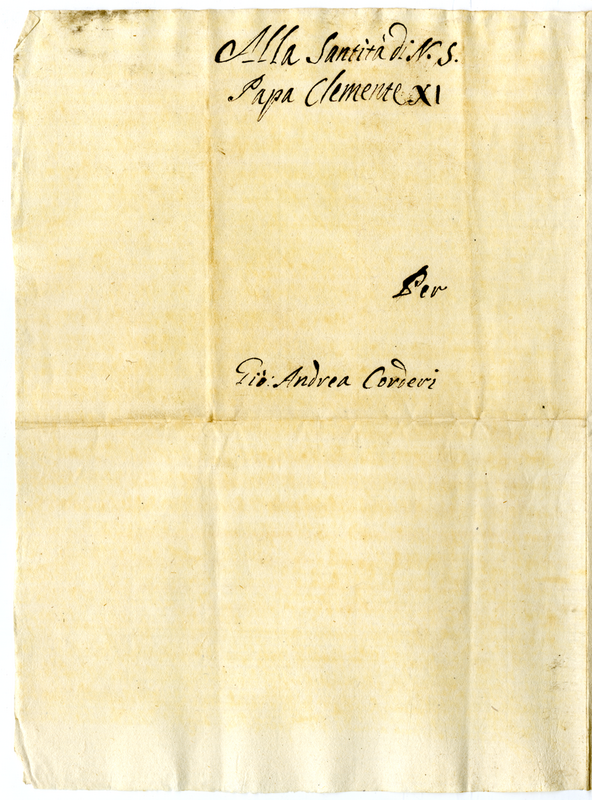 Alla Santità di N. S.
Papa Clemente XI
Per
Gio: Andrea Corderi